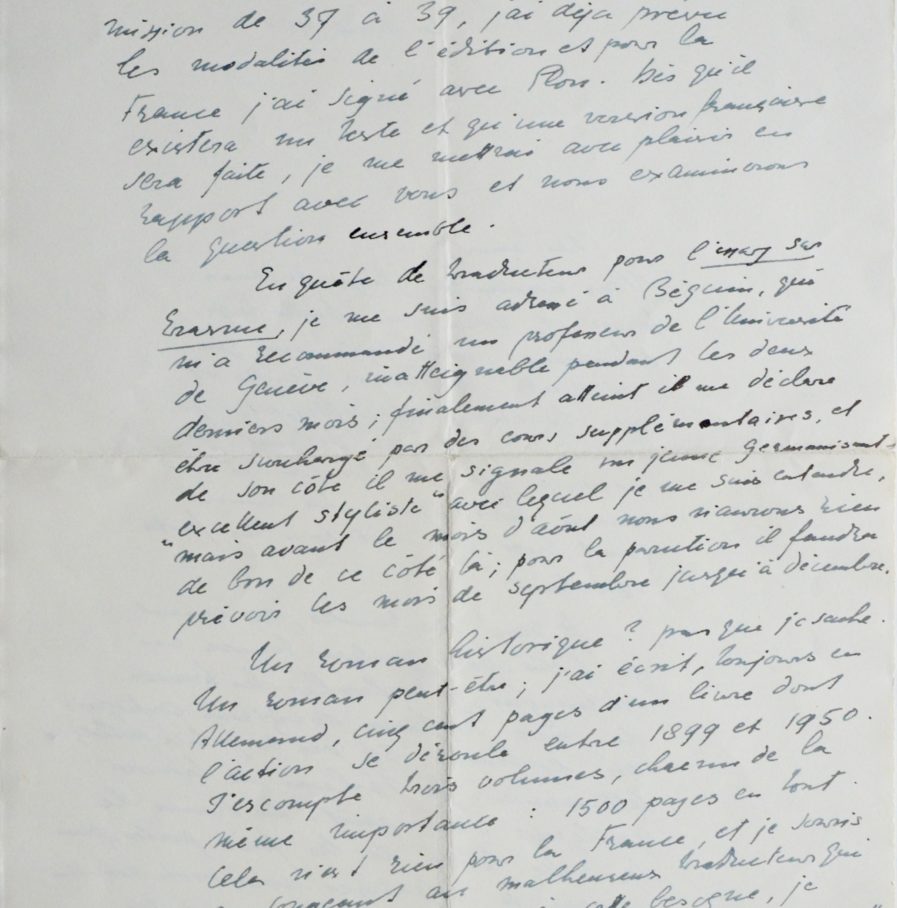 mission de 37 à 39, j'ai déja prévu
les modalités de l'édition et pour la
France j'ai signé avec Plon. Dès qu'il
existera un texte et qu'une version française
sera faite, je me mettrai avec plaisir en
rapport avec vous et nous examinerons
la question ensemble.
En quête de traducteur pour l'essay sur
Erasme, je me suis adressé à Béguin, qui
m'a recommandé un professeur de l'Université
de Genève, inatteignable pendant les deux
derniers mois ; finalement atteint il me déclare
être surchargé par des cours supplémentaires, et
de son côté il me signale un jeune Germanisant
"excellent styliste" avec lequel je me suis entendu,
mais avant le mois d'août nous n'aurons rien
de bon de ce côté là ; pour la parution il faudra
prévoir les mois de septembre jusqu'à décembre.
Un roman historique ? pas que je sache.
Un roman peut-être ; j'ai écrit, toujours en
Allemand, cinq cent pages d'un livre dont
l'action se déroule entre 1899 et 1950.
J'escompte trois volumes, chacun de la
même importance : 1500 pages en tout.
Cela n'est rien pour la France, et je souris
en songeant au malheureux traducteur qui
cette besogne, je